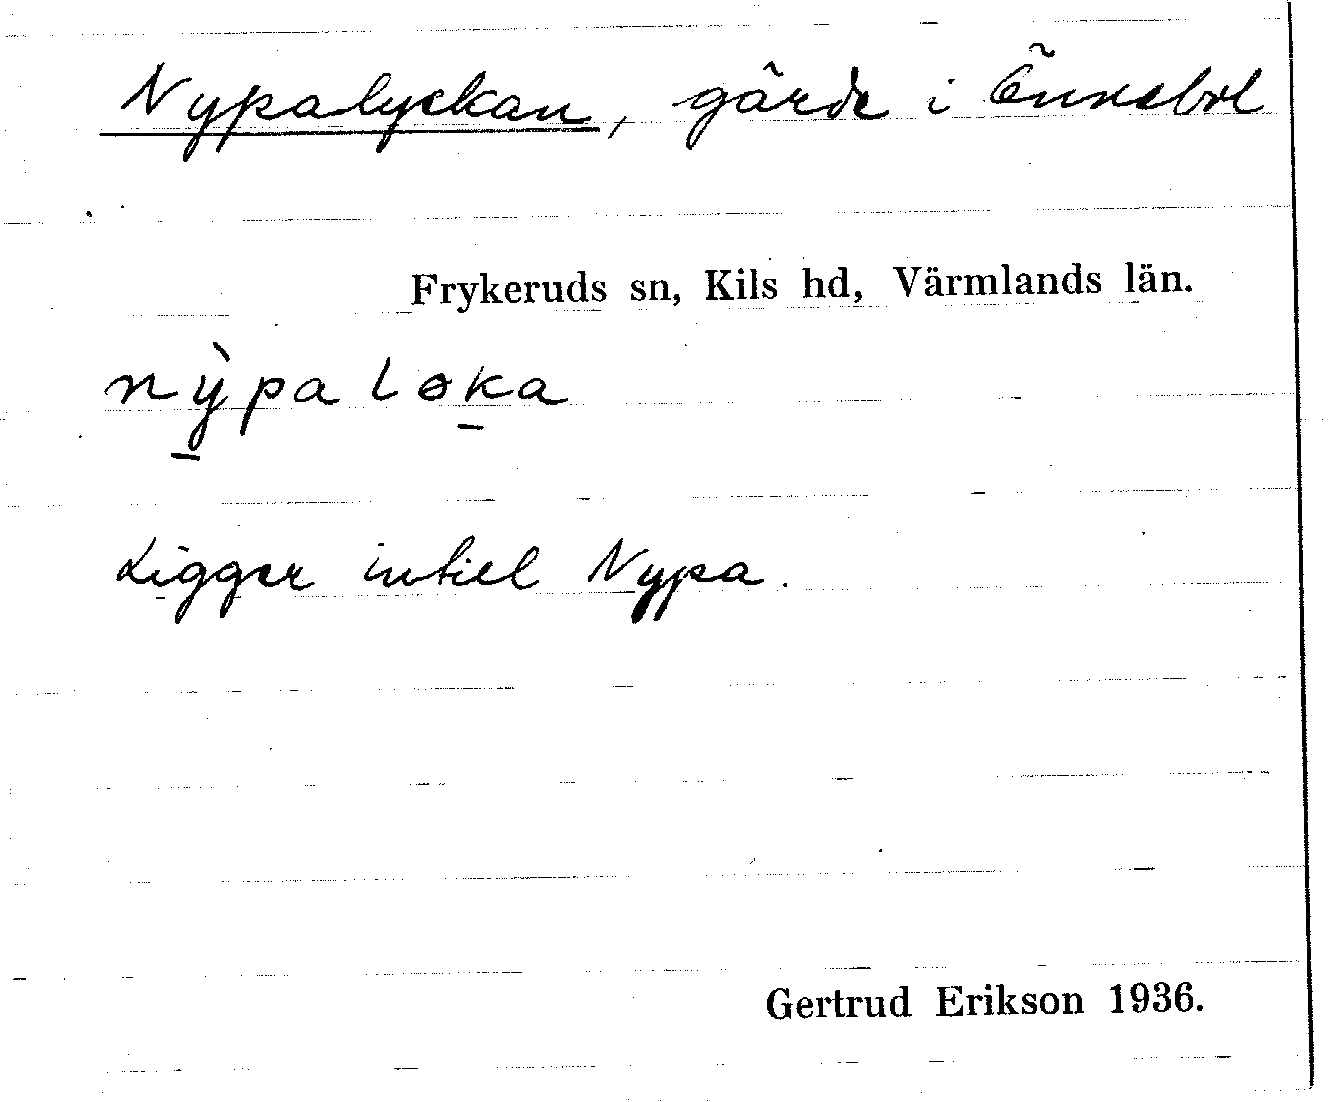 Nypalyckan, gärde i Önnebol
Frykeruds sn, Kils hd, Värmlands län.
nỳpaləka
Ligger intill Nypa.
Gertrud Erikson 1936.